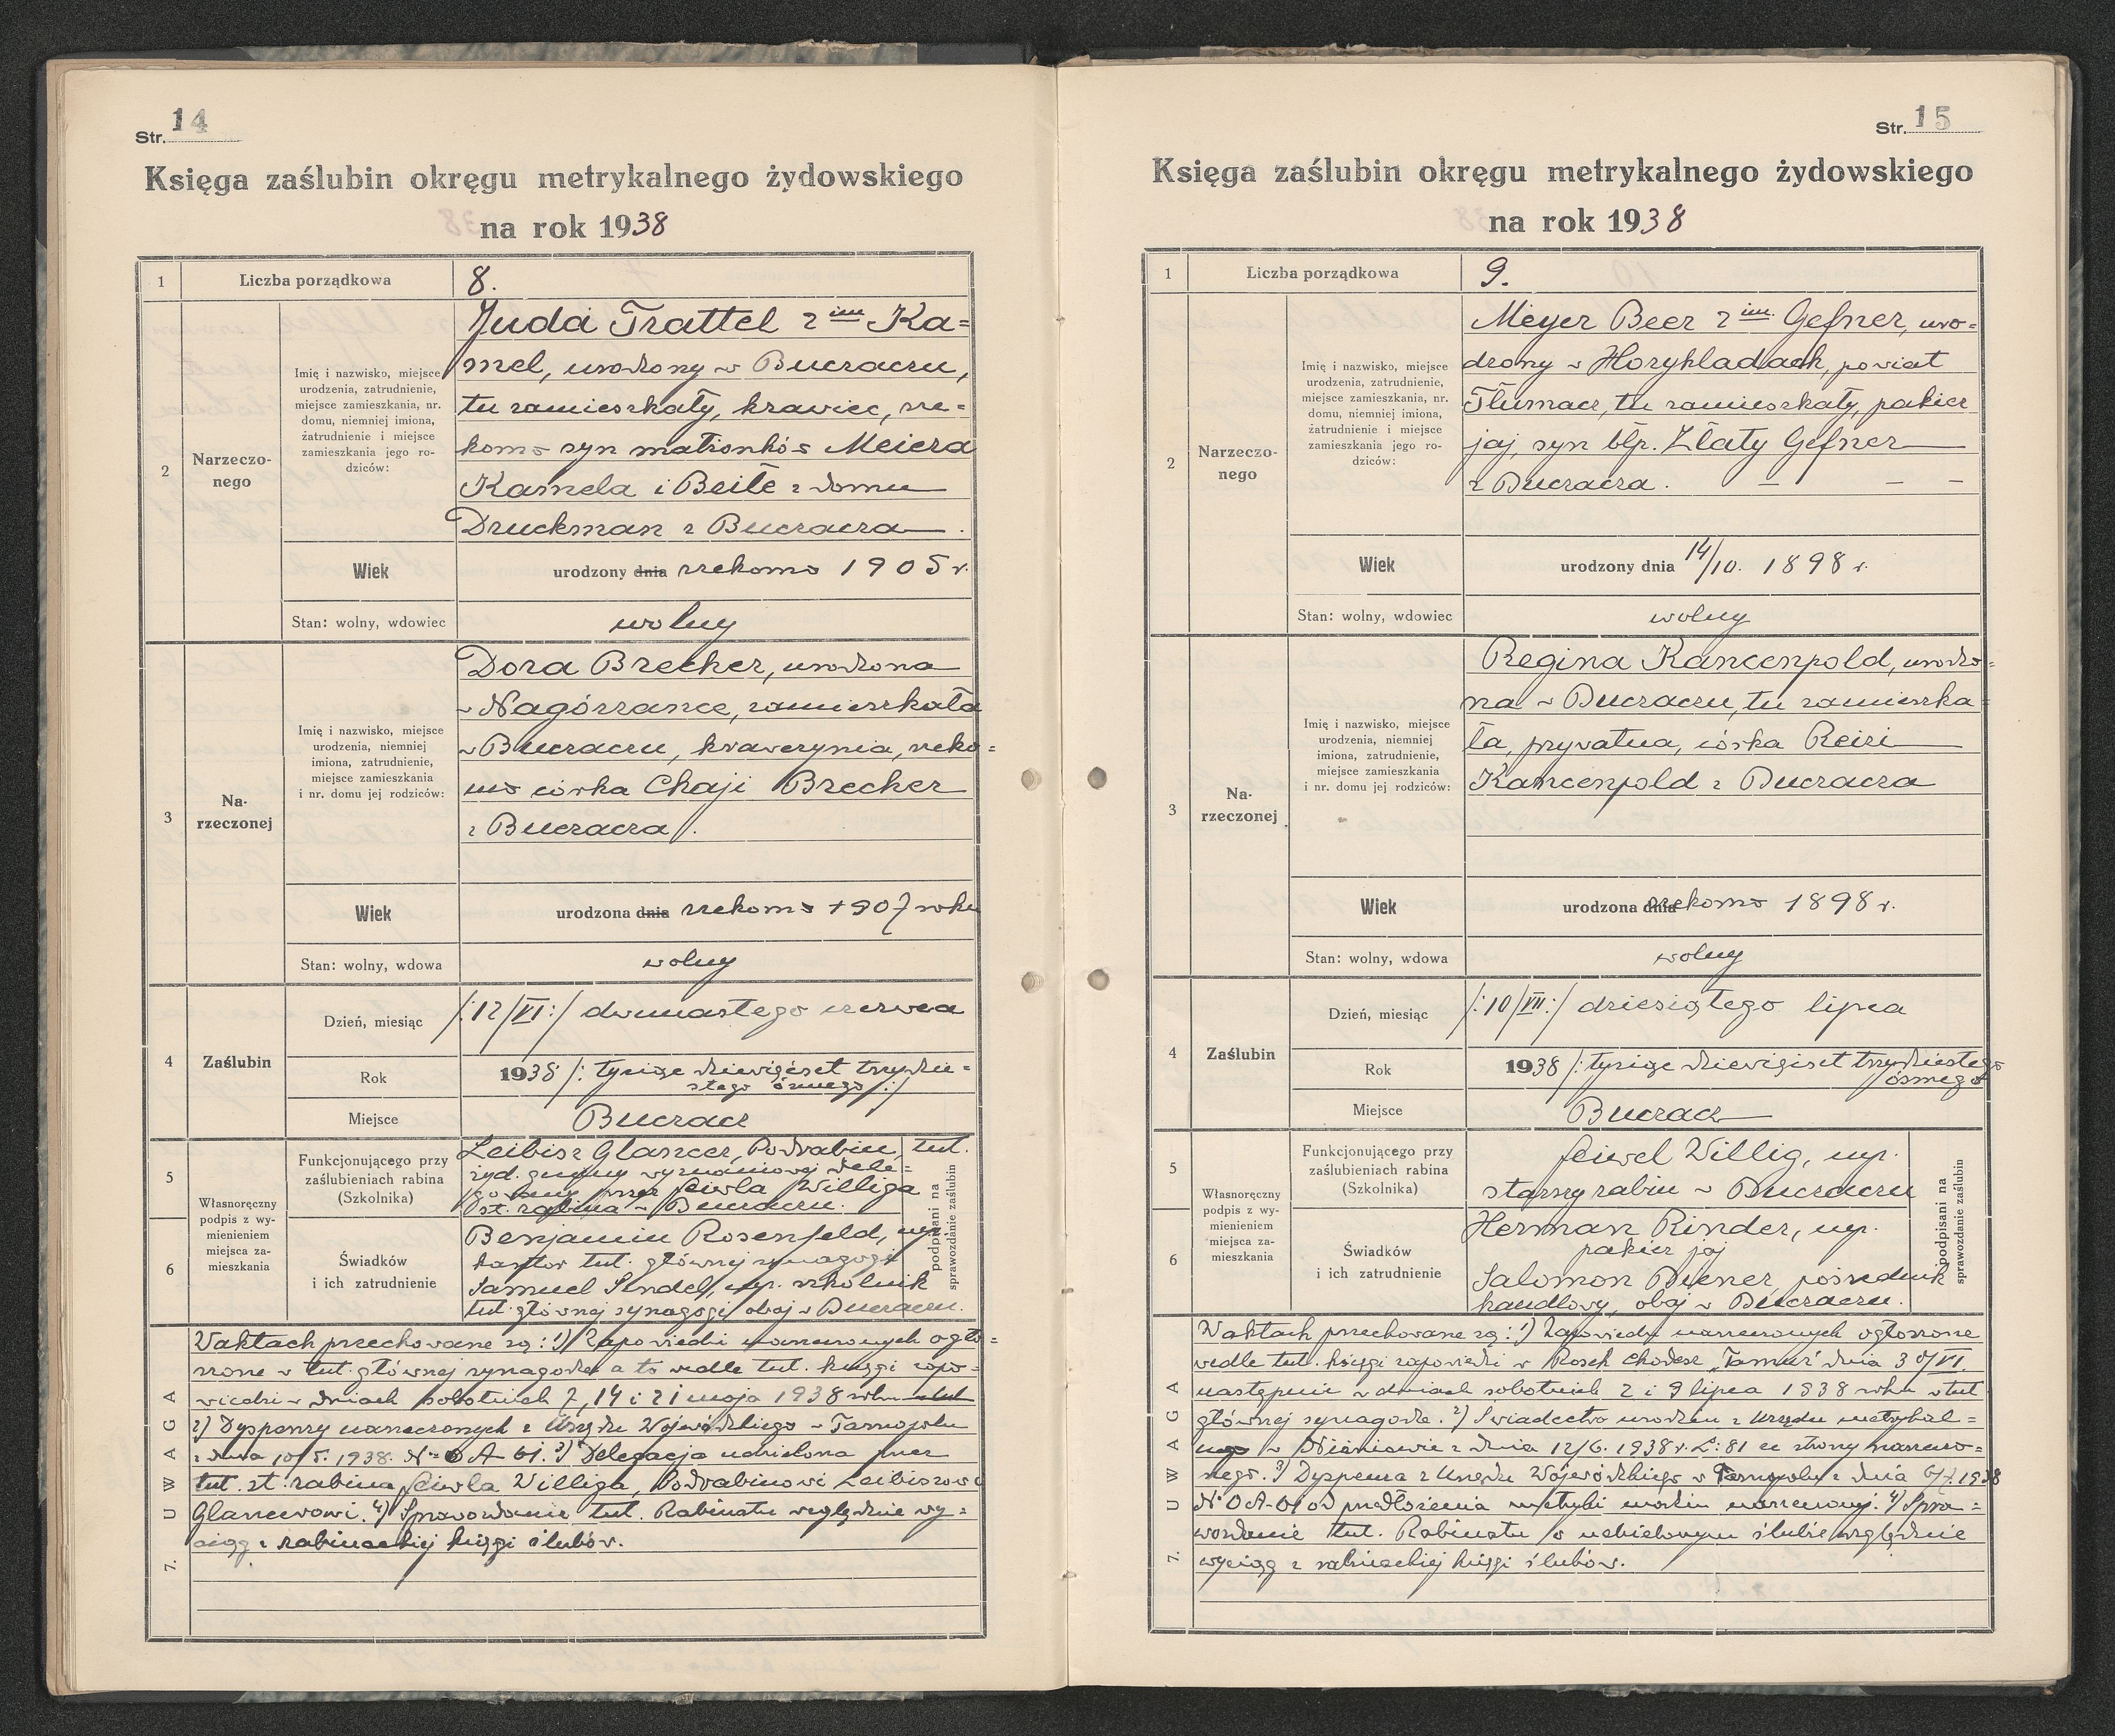 Str. 14
Księga zaślubin okręgu metrykalnego żydowskiego
na rok 1938
1 Liczba porządkowa 8.
2 Narzeczo-
nego
Imię i nazwisko, miejsce
urodzenia, zatrudnienie,
miejsce zamieszkania, nr.
domu, niemniej imiona,
zatrudnienie i miejsce
zamieszkania jego ro-
dziców:
Juda Trattel 2 im Ka=
mel, urodzony w Buczaczu,
tu zamieszkały, krawiec, rze-
komo syn małżonków Meiera
Kamela i Beile z domu
Druckman z Buczacza.
Wiek urodzony dnia rzekomo 1905 r.
Stan: wolny, wdowiec wolny
3 Na-
rzeczonej
Imię i nazwisko, miejsce
urodzenia, niemniej
imiona, zatrudnienie,
miejsce zamieszkania
i nr. domu jej rodziców:
Dora Brecher, urodzona
w Nagórzance, zamieszkała
w Buczaczu, krawczynia, rzeko=
mo córka Chaji Brecher
z Buczacza.
Wiek urodzona dnia rzekomo 1907 roku
Stan: wolny, wdowa wolny
4 Zaślubin
Dzień, miesiąc /:12/VI:/ dwunastego czerwca
Rok 1938 /: tysiąc dziewięćset trzydzie-
stego ósmego :/
Miejsce Buczacz
5
Własnoręczny
podpis z wy-
mienieniem
miejsca za-
mieszkania
Funkcjonującego przy
zaślubieniach rabina
(Szkolnika)
Leibisz Glancer, Podrabin tut.
żyd. gminy wyznaniowej dele=
gowany przez Feiwla Williga
st. rabina w Buczaczu.
6
Świadków
i ich zatrudnienie
Benjamin Rosenfeld, mp.
kantor tut. głównej synagogi
Samuel Sendel, mp. szkolnik
tut. głównej synagogi obaj w Buczaczu.
podpisani na
sprawozdanie zaślubin
7. UWAGA
W aktach przechowane są: 1) Zapowiedzi narzeczonych ogło=
szone w tut. głównej synagodze a to wedle tut. księgi zapo=
wiedzi w dniach sobotnich 7, 14 i 21 maja 1938 roku
2) Dyspensy narzeczonych z Urzędu Wojewódzkiego w Tarnopolu
z dnia 10/5. 1938. No OA-61. 3) Delegacja udzielona przez
tut. st. rabina Feiwla Williga, Podrabinowi Leibiszowi
Glancerowi. 4) Sprawozdanie tut. Rabinatu względnie wy=
ciąg z rabinackiej księgi ślubów.
Str. 15
Księga zaślubin okręgu metrykalnego żydowskiego
na rok 1938
1 Liczba porządkowa 9.
2 Narzeczo-
nego
Imię i nazwisko, miejsce
urodzenia, zatrudnienie,
miejsce zamieszkania, nr.
domu, niemniej imiona,
zatrudnienie i miejsce
zamieszkania jego ro-
dziców:
Meyer Beer 2 im. Gefner, uro=
dzony w Horyhladach, powiat
Tłumacz, tu zamieszkały, pakier
jaj, syn błp. Złaty Gefner
z Buczacza.
Wiek urodzony dnia 14/10. 1898 r.
Stan: wolny, wdowiec wolny
3 Na-
rzeczonej
Imię i nazwisko, miejsce
urodzenia, niemniej
imiona, zatrudnienie,
miejsce zamieszkania
i nr. domu jej rodziców:
Regina Kancenpold, urodzo=
na w Buczaczu, tu zamieszka=
ła, prywatna, córka Reizi
Kancenpold z Buczacza
Wiek urodzona dnia rzekomo 1898 r.
Stan: wolny, wdowa wolny
4 Zaślubin
Dzień, miesiąc /:10/VII:/ dziesiątego lipca
Rok 1938 /: tysiąc dziewięćset trzydziestego
ósmego
Miejsce Buczacz
5
Własnoręczny
podpis z wy-
mienieniem
miejsca za-
mieszkania
Funkcjonującego przy
zaślubieniach rabina
(Szkolnika)
Feiwel Willig, mp.
starszy rabin w Buczaczu
6
Świadków
i ich zatrudnienie
Herman Rinder, mp.
pakier jaj
Salomon Diener, pośrednik
handlowy, obaj w Buczaczu.
podpisani na
sprawozdanie zaślubin
7. UWAGA
W aktach przechowane są: 1) Zapowiedzi narzeczonych ogłoszone
wedle tut. księgi zapowiedzi w Rosch Chodesz "Tamuz" dnia 30/VI.
następnie w dniach sobotnich 2 i 9 lipca 1938 roku w tut.
głównej synagodze. 2) Świadectwo urodzin z Urzędu metrykal=
nego w Niżniowie z dnia 12/6. 1938 r. L: 81 ze strony narzeczo=
nego. 3) Dyspensa z Urzędu Wojewódzkiego w Tarnopolu z dnia 6/7. 1938
No OA-61 od przedłożenia metryki urodzin narzeczonej. 4) Spra=
wozdanie tut. Rabinatu o udzielonym ślubie względnie
wyciąg z rabinackiej księgi ślubów.